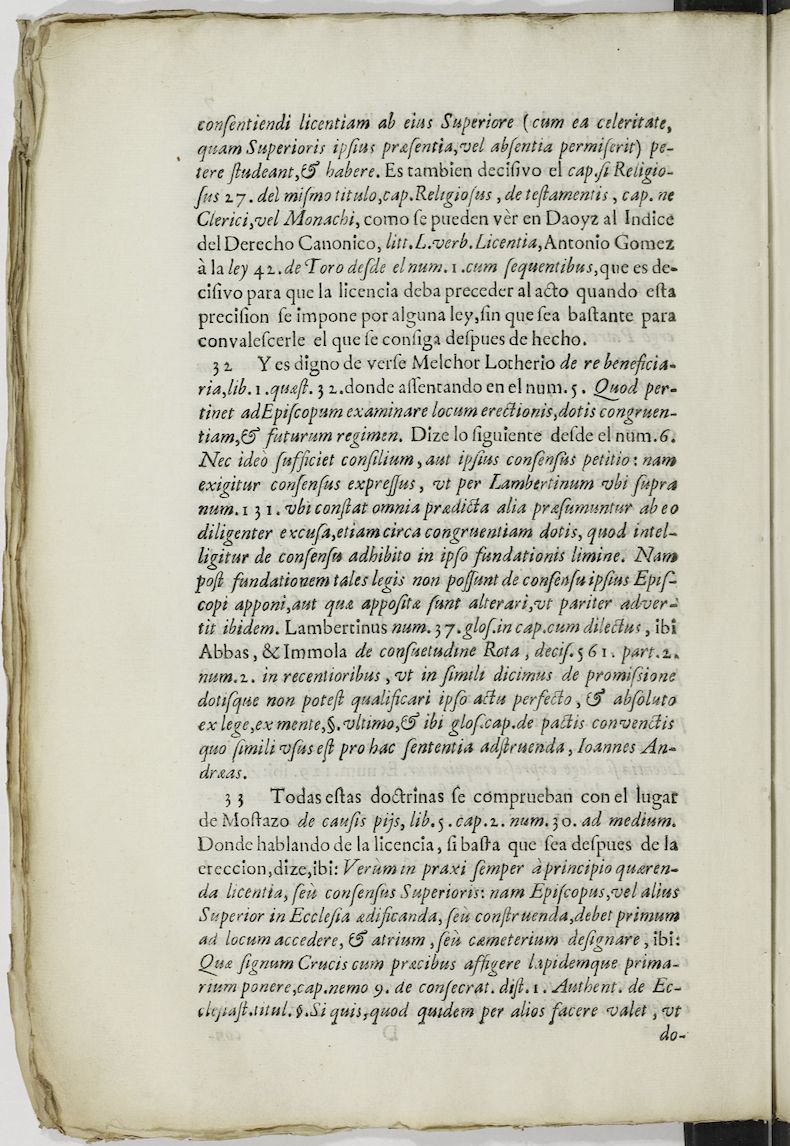 conſentiendi licentiam ab eius Superiore (cum ea celeritate,
quam Superioris ipſius præſentia,vel abſentia permiſerit) pe-
tere ſtudeant,& habere. Es tambien deciſivo el cap.ſi Religio-
ſus 27. del miſmo titulo,cap.Religioſus, de teſtamentis, cap. ne
Clerici,vel Monachi, como ſe pueden vèr en Daoyz al Indice
del Derecho Canonico, litt.L.verb.Licentia, Antonio Gomez
à la ley 42.de Toro deſde el num.1.cum ſequentibus,que es de-
ciſivo para que la licencia deba preceder al acto quando eſta
preciſion ſe impone por alguna ley,ſin que ſea baſtante para
convaleſcerle el que ſe conſiga deſpues de hecho.
32 Y es digno de verſe Melchor Lotherio de re beneficia-
ria,lib.1.quæſt.32.donde aſſentando en el num.5. Quod per-
tinet ad Epiſcopum examinare locum erectionis,dotis congruen-
tiam,& futurum regimen. Dize lo ſiguiente deſde el num.6.
Nec ideò ſufficiet conſilium, aut ipſius conſenſus petitio: nam
exigitur conſenſus expreſſus, vt per Lambertinum vbi ſupra
num.131. vbi conſtat omnia prædicta alia præſumuntur ab eo
diligenter excuſa,etiam circa congruentiam dotis, quod intel-
ligitur de conſenſu adhibito in ipſo fundationis limine. Nam
poſt fundationem tales legis non poſſunt de conſenſu ipſius Epiſ-
copi apponi,aut quæ appoſitæ ſunt alterari,vt pariter adver-
tit ibidem. Lambertinus num.37.gloſ.in cap.cum dilectus, ibi
Abbas, & Immola de conſuetudine Rota, deciſ.561. part.2.
num.2. in recentioribus, vt in ſimili dicimus de promiſſione
dotiſque non poteſt qualificari ipſo actu perfecto, & abſoluto
ex lege,ex mente,§.vltimo,& ibi gloſ.cap.de pactis convenctis
quo ſimili vſus eſt pro hac ſententia adſtruenda, Ioannes An-
dræas.
33 Todas eſtas doctrinas ſe comprueban con el lugar
de Moſtazo de cauſis pijs, lib.5.cap.2. num.30. ad medium.
Donde hablando de la licencia, ſi baſta que ſea deſpues de la
ereccion,dize,ibi: Verùm in praxi ſemper à principio quæren-
da licentia, ſeù conſenſus Superioris: nam Epiſcopus,vel alius
Superior in Eccleſia ædificanda, ſeù conſtruenda,debet primum
ad locum accedere, & atrium, ſeù cæmeterium deſignare, ibi:
Quæ ſignum Crucis cum præcibus affigere lapidemque prima-
rium ponere,cap.nemo 9. de conſecrat. diſt.1. Authent. de Ec-
cleſiaſt.titul.§.Si quis,quod quidem per alios facere valet, vt
do-